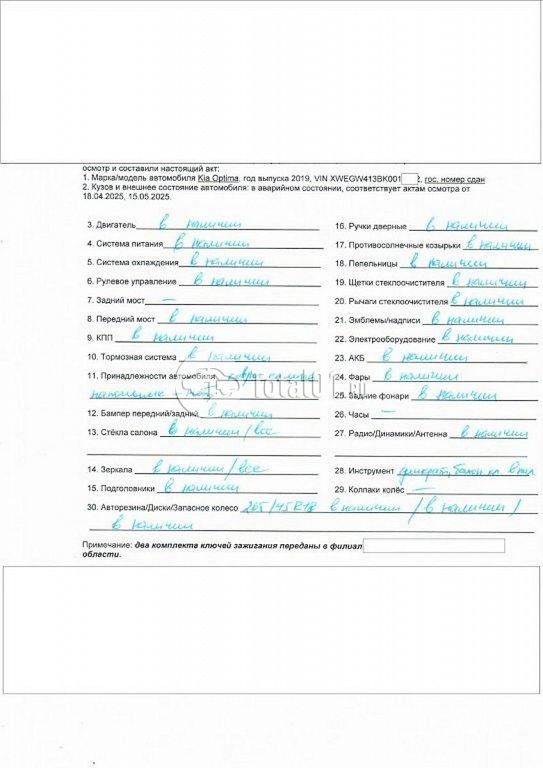 осмотр и составили настоящий акт:
1. Марка/модель автомобиля Kia Optima, год выпуска 2019, VIN XWEGW413BK001 2, гос. номер сдан
2. Кузов и внешнее состояние автомобиля: в аварийном состоянии, соответствует актам осмотра от
18.04.2025, 15.05.2025.
3. Двигатель в наличии
4. Система питания в наличии
5. Система охлаждения в наличии
6. Рулевое управление в наличии
7. Задний мост —
8. Передний мост в наличии
9. КПП в наличии
10. Тормозная система в наличии
11. Принадлежности автомобиля
12. Бампер передний/задний в наличии
13. Стёкла салона в наличии/все
14. Зеркала в наличии/все
15. Подголовники в наличии
16. Ручки дверные в наличии
17. Противосолнечные козырьки в наличии
18. Пепельницы в наличии
19. Щетки стеклоочистителя в наличии
20. Рычаги стеклоочистителя в наличии
21. Эмблемы/надписи в наличии
22. Электрооборудование в наличии
23. АКБ в наличии
24. Фары в наличии
25. Задние фонари в наличии
26. Часы —
27. Радио/Динамики/Антенна в наличии
28. Инструмент домкрат, балон кл.
29. Колпаки колёс —
30. Авторезина/Диски/Запасное колесо 205/45R18 в наличии / в наличии /
в наличии
Примечание: два комплекта ключей зажигания переданы в филиал
области.
Total01.ru